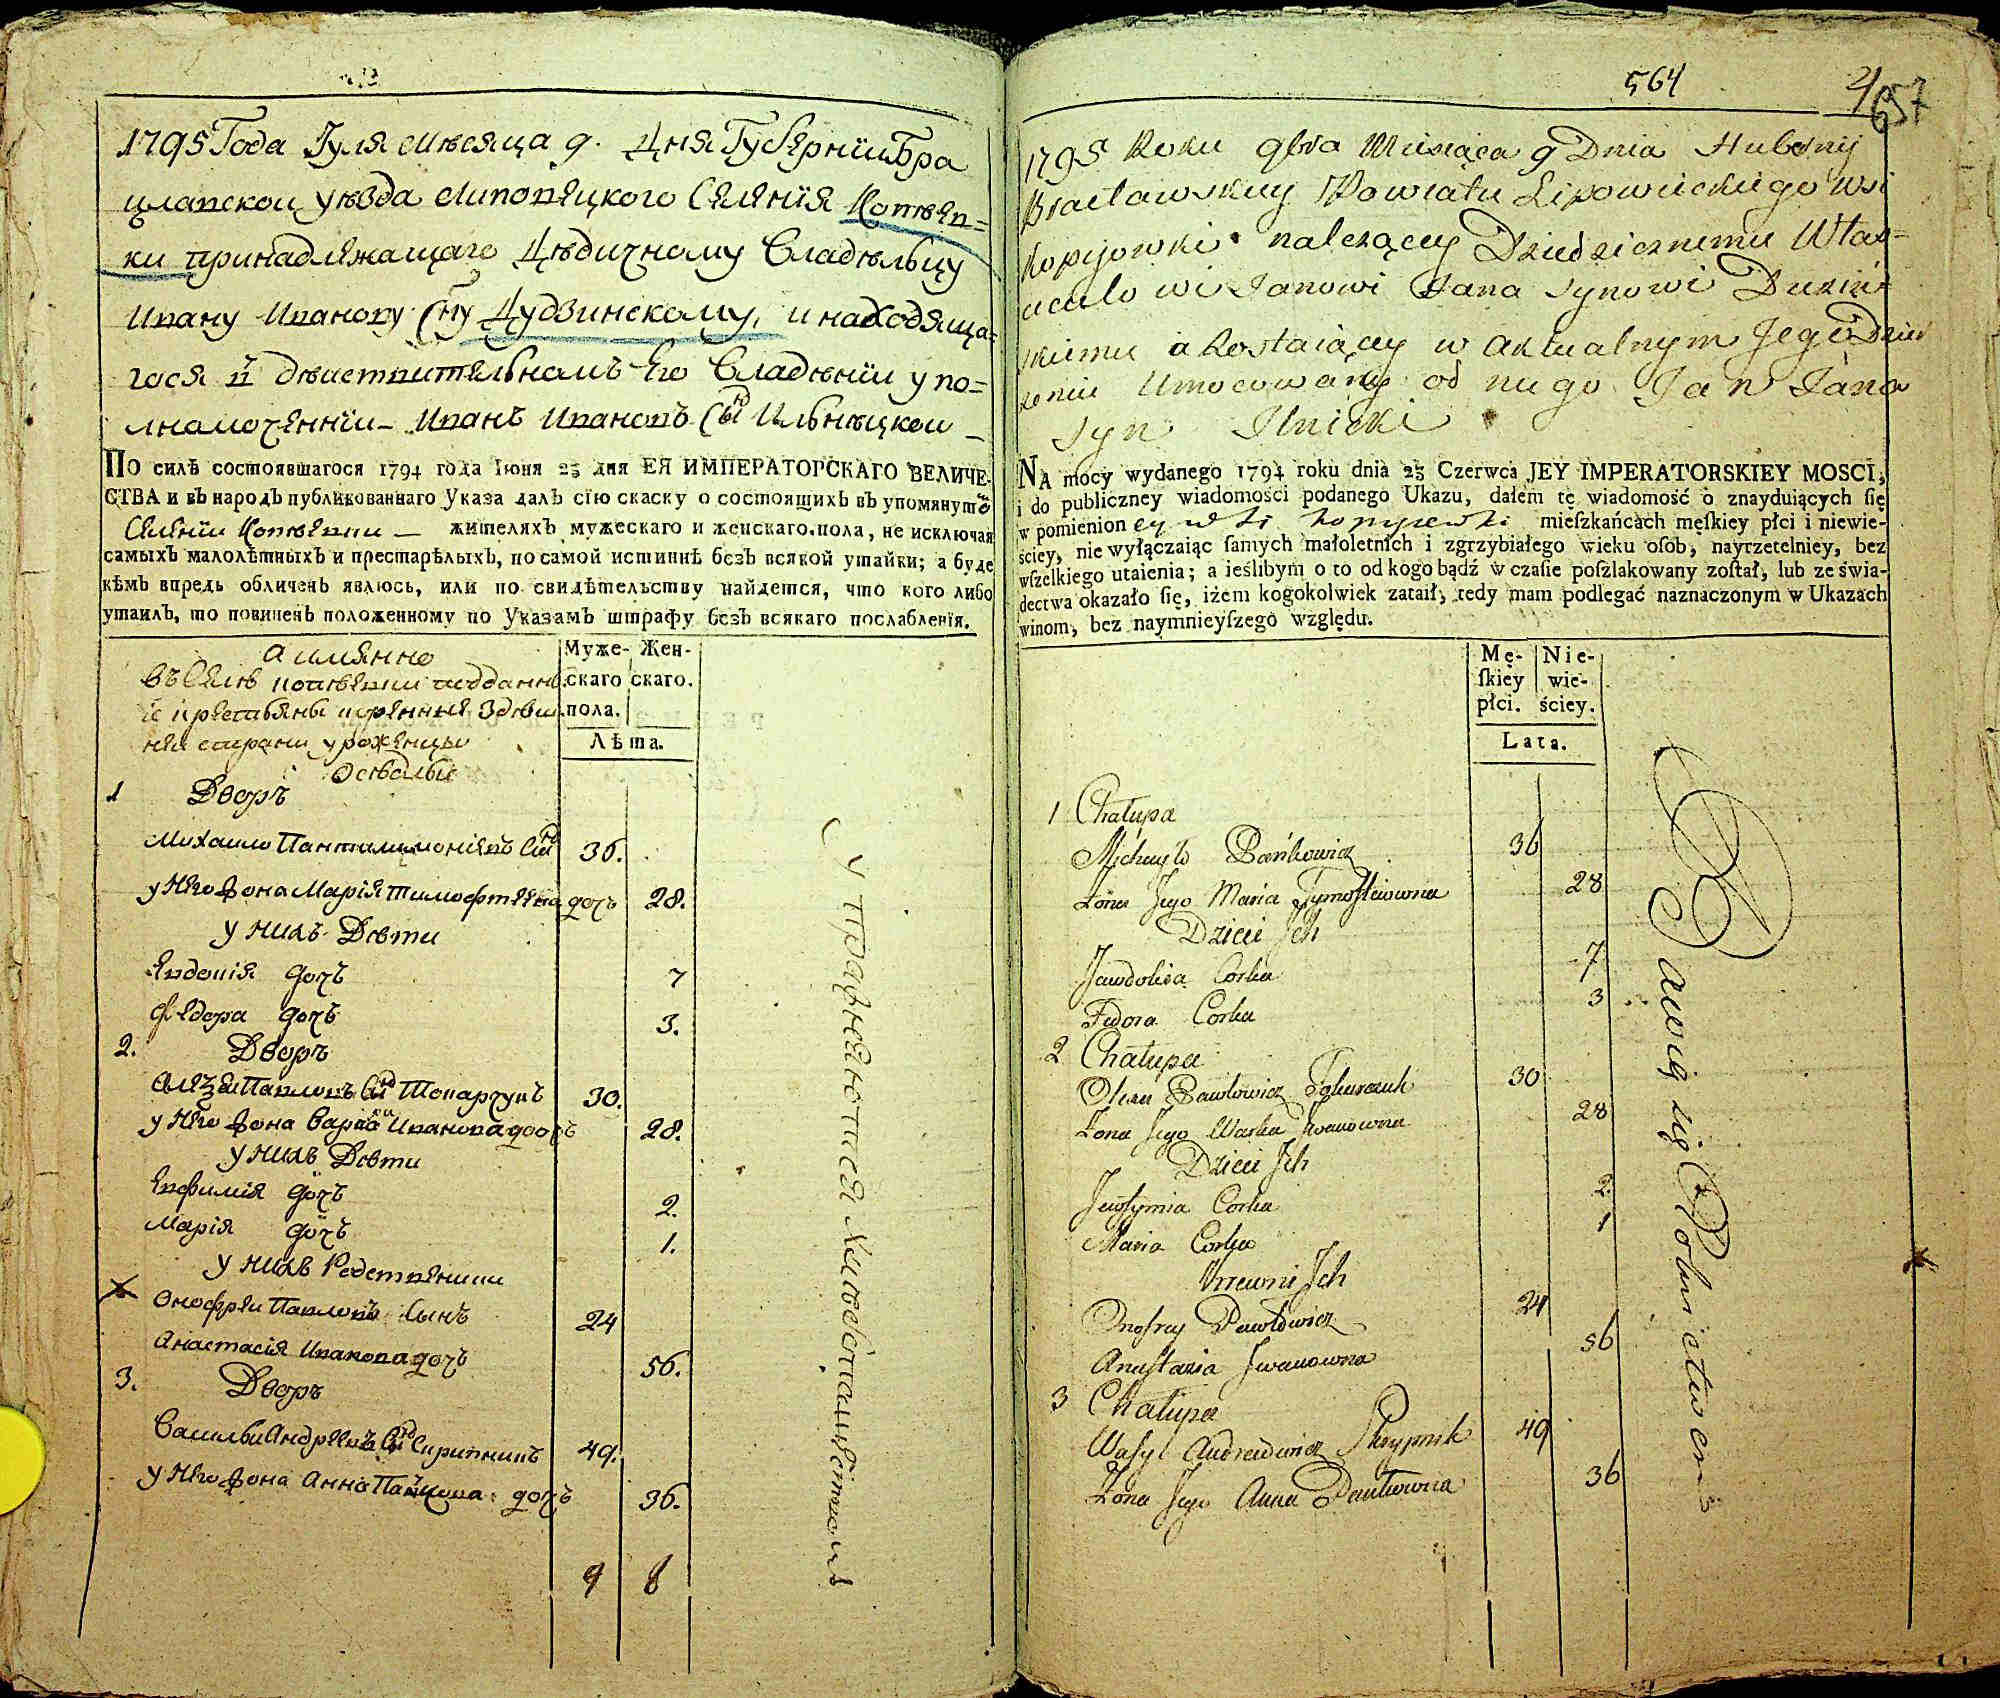 1795 Года Іуля мѣсяца 9. Дня Губерніи Бра
цлавской уѣзда Липовецкого Селенїя Копѣев=
ки принадлежащаго Дѣдичному Владѣльцу
Ивану Иванову Сну Дудзинскому, и находяща=
гося в дѣиствительномъ Его Владѣнїи упо=
лномоченнїи Иванъ Ивановъ Снъ Ильницкои
По силѣ состоявшагося 1794 года Іюня 23 дня ЕЯ ИМПЕРАТОРСКАГО ВЕЛИЧЕ-
СТВА и въ народъ публикованнаго Указа далъ сїю скаску о состоящихъ въ упомянутѡ
Селенїи Копѣевки жителяхъ мужескаго и женскаго пола, не исключая
самыхъ малолѣтныхъ и престарѣлыхъ, по самой истиннѣ безъ всякой утайки; а буде
кѣмъ впредь обличенъ явлюсь, или по свидѣтельству найдется, что кого либо
утаилъ, то повиненъ положенному по Указамъ штрафу безъ всякаго послабленїя.
Муже-скаго пола. Жен-скаго.
Лѣта.
а имянно
въ Селѣ Копѣевки подданнї
урожѣнцы
1 Дворъ
Михаило Пантилимонїевъ Снъ 36.
у Него Жона Марїя Тимофтеева дочъ 28.
у нихъ Дѣти
Евдокїя дочъ 7
Федора дочъ 3.
2. Дворъ
Павловъ Снъ 30.
у Него Жона Варка Иванова дочъ 28.
у нихъ Дѣти
Евфимїя дочъ 2.
Марїя дочъ 1.
у нихъ Родственники
Онофреи Павловъ Сынъ 24
Анастасїя Иванова дочъ 56.
3. Дворъ
Василеи Андреевъ Снъ Скрипникъ 49.
у Него Жона Анна Панкова дочъ 36.
4 8
упражняются Хлебопашеством
564
657
1795 Roku Miesiąca 9 Dnia Hubernij
Bracławskiey Powiatu Lipowieckiego wsi
Kopijowki należącey Dziedzicznemu Właś=
cicielowi Janowi Jana Synowi Dudziń=
skiemu a Zostaiącey w Aktualnym Jego Dzier
żeniu Umocowany od niego Jan Jana
Syn Ilnicki
NA mocy wydanego 1794 roku dnia 23 Czerwca JEY IMPERATORSKIEY MOSCI,
i do publiczney wiadomości podanego Ukazu, dałem tę wiadomość o znayduiących ſię
w pomienioney wsi Kopyjewki mieſzkańcach męſkiey płci i niewie-
ściey, nie wyłączaiąc ſamych małoletnich i zgrzybiałego wieku oſob, nayrzetelniey, bez
wſzelkiego utaienia; a ieślibym o to od kogo bądź w czaſie poſzlakowany zoſtał, lub ze świa-
dectwa okazało ſię, iżem kogokolwiek zataił, tedy mam podlegać naznaczonym w Ukazach
winom, bez naymnieyſzego względu.
Mę-ſkiey płci. Nie-wie-ściey.
Lata.
1 Chałupa
Michayło Pańkowicz 36
Żona Jego Maria Tymofteiowna 28
Dzieci Ich
Jawdokia Corka 7
Fedora Corka 3
2 Chałupa
Olexa Pawłowicz 30
Żona Jego Warka Iwanowna 28
Dzieci Ich
Jewfymia Corka 2.
Maria Corka 1
Krewni Ich
Onofrey Pawłowicz 24
Anastazia Iwanowna 56
3 Chałupa
Waſyl Andreiowicz Skrypnik 49
Żona Jego Anna Pańkowna 36
Bawią się Rolnictwem